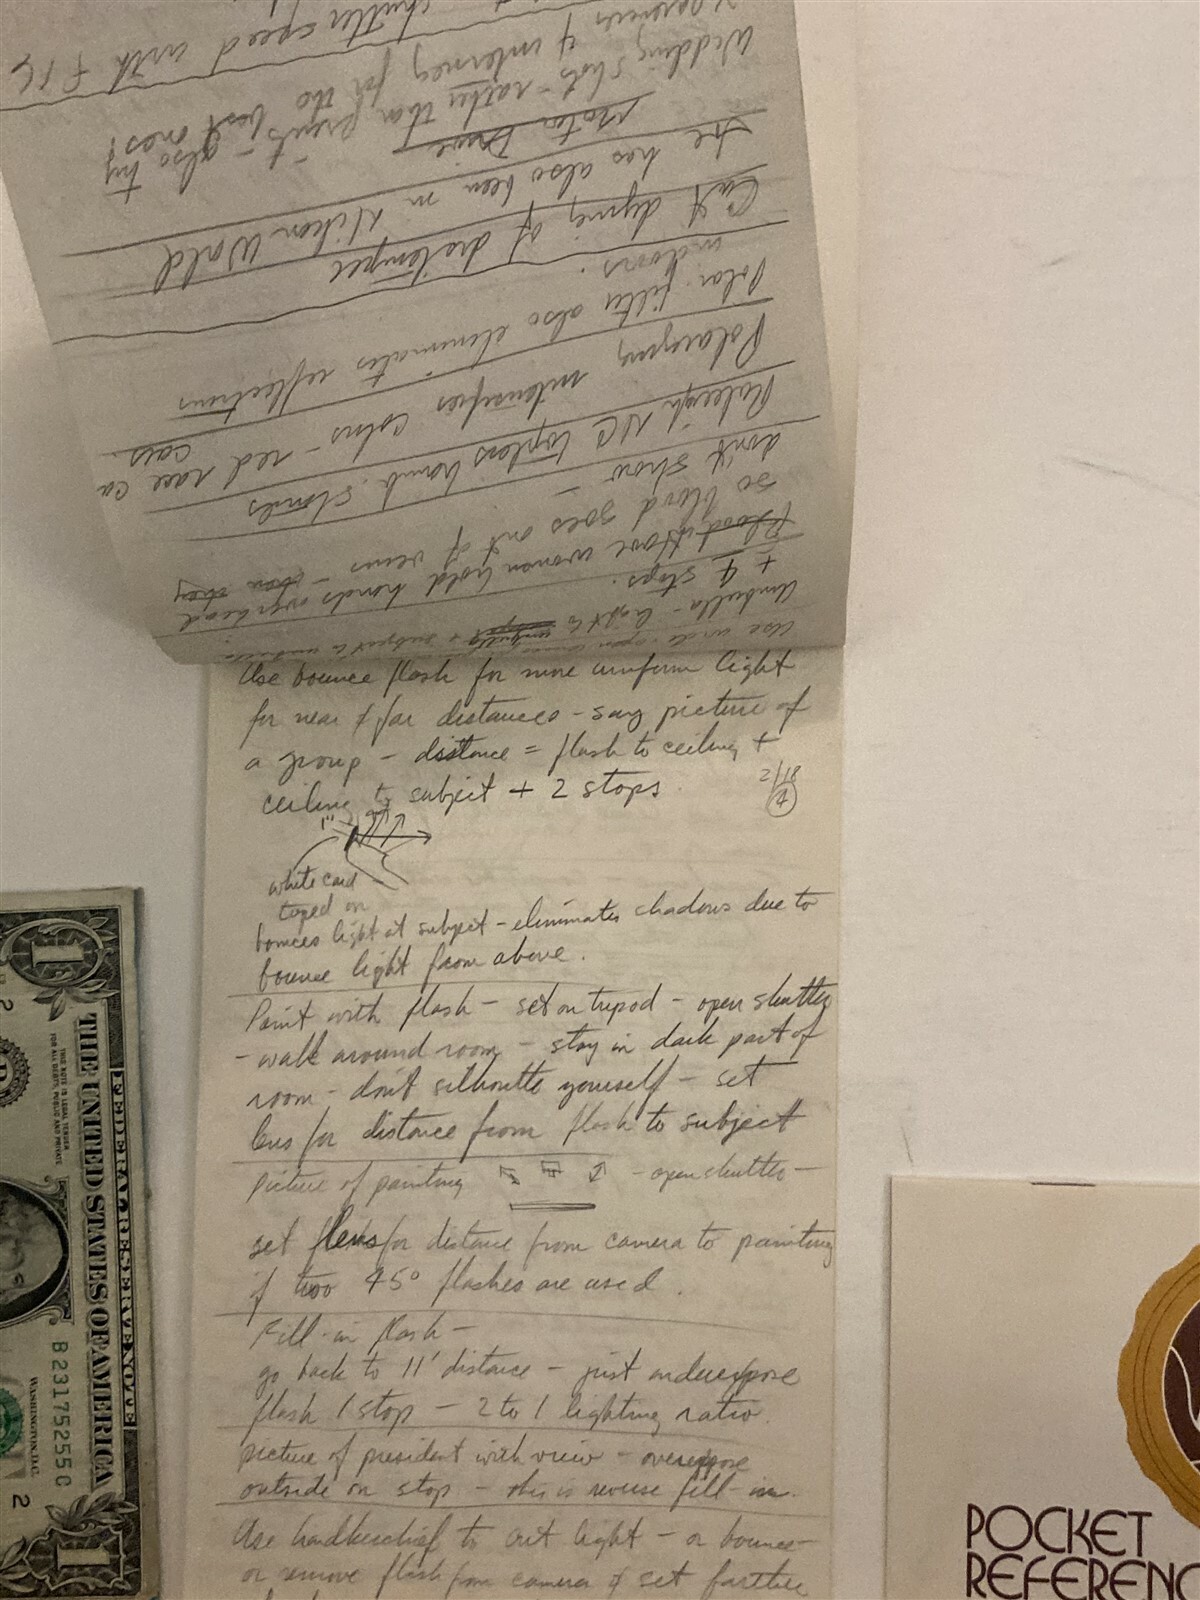 Use bounce flash for more uniform light
for near & far distances - say picture of
a group - distance = flash to ceiling +
ceiling to subject + 2 stops.
2/18
4
1"
white card
taped on
bounces light at subject - eliminates shadows due to
bounce light from above.
Paint with flash - set on tripod - open shutter
- walk around room - stay in dark part of
room - don't silhoutte yourself - set
lens for distance from flash to subject
Picture of painting - open shutter -
set lens for distance from camera to painting
if two 45° flashes are used.
Fill-in flash -
go back to 11' distance - just underexpose
flash 1 stop - 2 to 1 lighting ratio.
picture of president with view - overexpose
outside on stop - this is reverse fill-in.
Use handkerchief to cut light - or bounce
or remove flash from camera & set farther
Use wide open + subject to umbrella.
Umbrella - light to umbrella
+ 4 stops.
Blood Have woman hold hands overhead
so blood goes out of veins - then they
don't show
Raleigh NC topless bomb. stands
Polarizing intensifies colors - red race ca
cars.
Polar. filter also eliminates reflections
indoors.
Cat dying of distemper
He has also been in Nikon World
motor Drive
Wedding shots - rather than prints - also try
of interneg for the best ones!
shutter speed with F16
FEDERAL RESERVE NOTE
THE UNITED STATES OF AMERICA
THIS NOTE IS LEGAL TENDER
FOR ALL DEBTS, PUBLIC AND PRIVATE
B 23175255 C
WASHINGTON, D.C.
2
2
1
1
POCKET
REFERENC